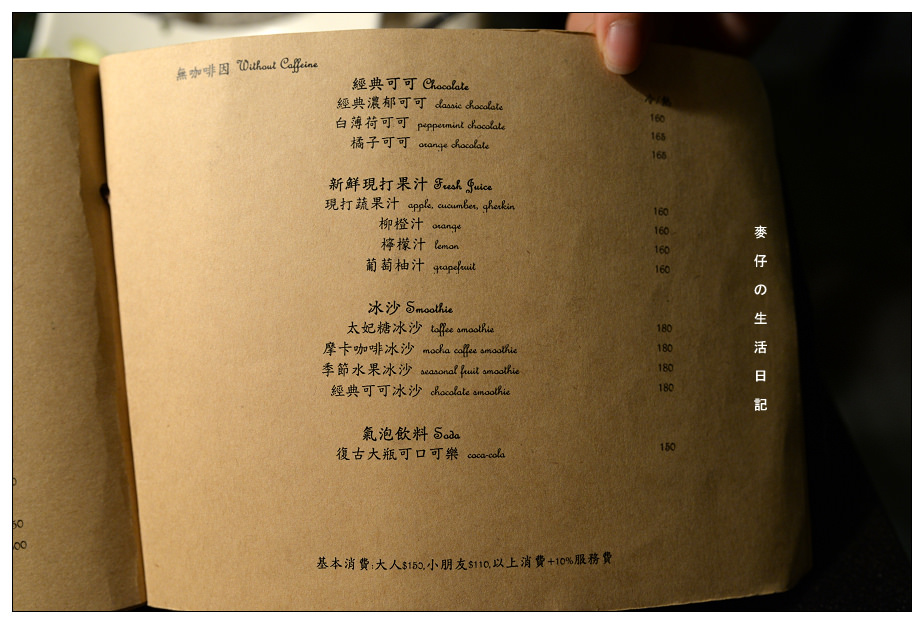 無咖啡因 Without Caffeine
經典可可 Chocolate
冰/熱
經典濃郁可可 classic chocolate 160
白薄荷可可 peppermint chocolate 165
橘子可可 orange chocolate 165
新鮮現打果汁 Fresh Juice
現打蔬果汁 apple, cucumber, gherkin 160
柳橙汁 orange 160
檸檬汁 lemon 160
葡萄柚汁 grapefruit 160
冰沙 Smoothie
太妃糖冰沙 toffee smoothie 180
摩卡咖啡冰沙 mocha coffee smoothie 180
季節水果冰沙 seasonal fruit smoothie 180
經典可可冰沙 chocolate smoothie 180
氣泡飲料 Soda
復古大瓶可口可樂 coca-cola 150
基本消費:大人$150,小朋友$110,以上消費+10%服務費
麥仔の生活日記